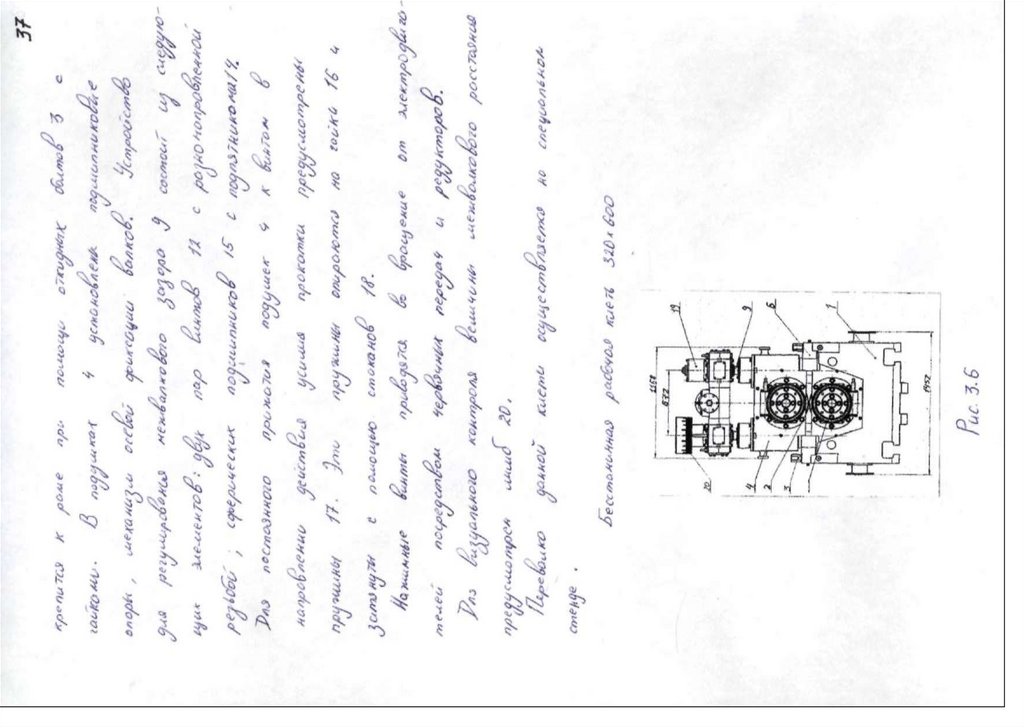 37
крепится к раме при помощи откидных болтов 3 с
гайками. В подушках 4 установлены подшипниковые
опоры, механизм осевой фиксации валков. Устройство
для регулирования межвалкового зазора 9 состоит из следую-
щих элементов: двух пар винтов 12 с разнонаправленной
резьбой, сферических подшипников 15 с подпятниками 14.
Для постоянного прижатия подушек 4 к винтам в
направлении действия усилия прокатки предусмотрены
пружины 17. Эти пружины опираются на гайки 16 и
затянуты с помощью стаканов 18.
Нажимные винты приводятся во вращение от электродвига-
телей посредством червячных передач и редукторов.
Для визуального контроля величины межвалкового расстояния
предусмотрен лимб 20.
Перевалка данной клети осуществляется на специальном
стенде.
Бесстанинная рабочая клеть 320 x 600
19
9
6
1
20
4
2
3
Рис. 3.6